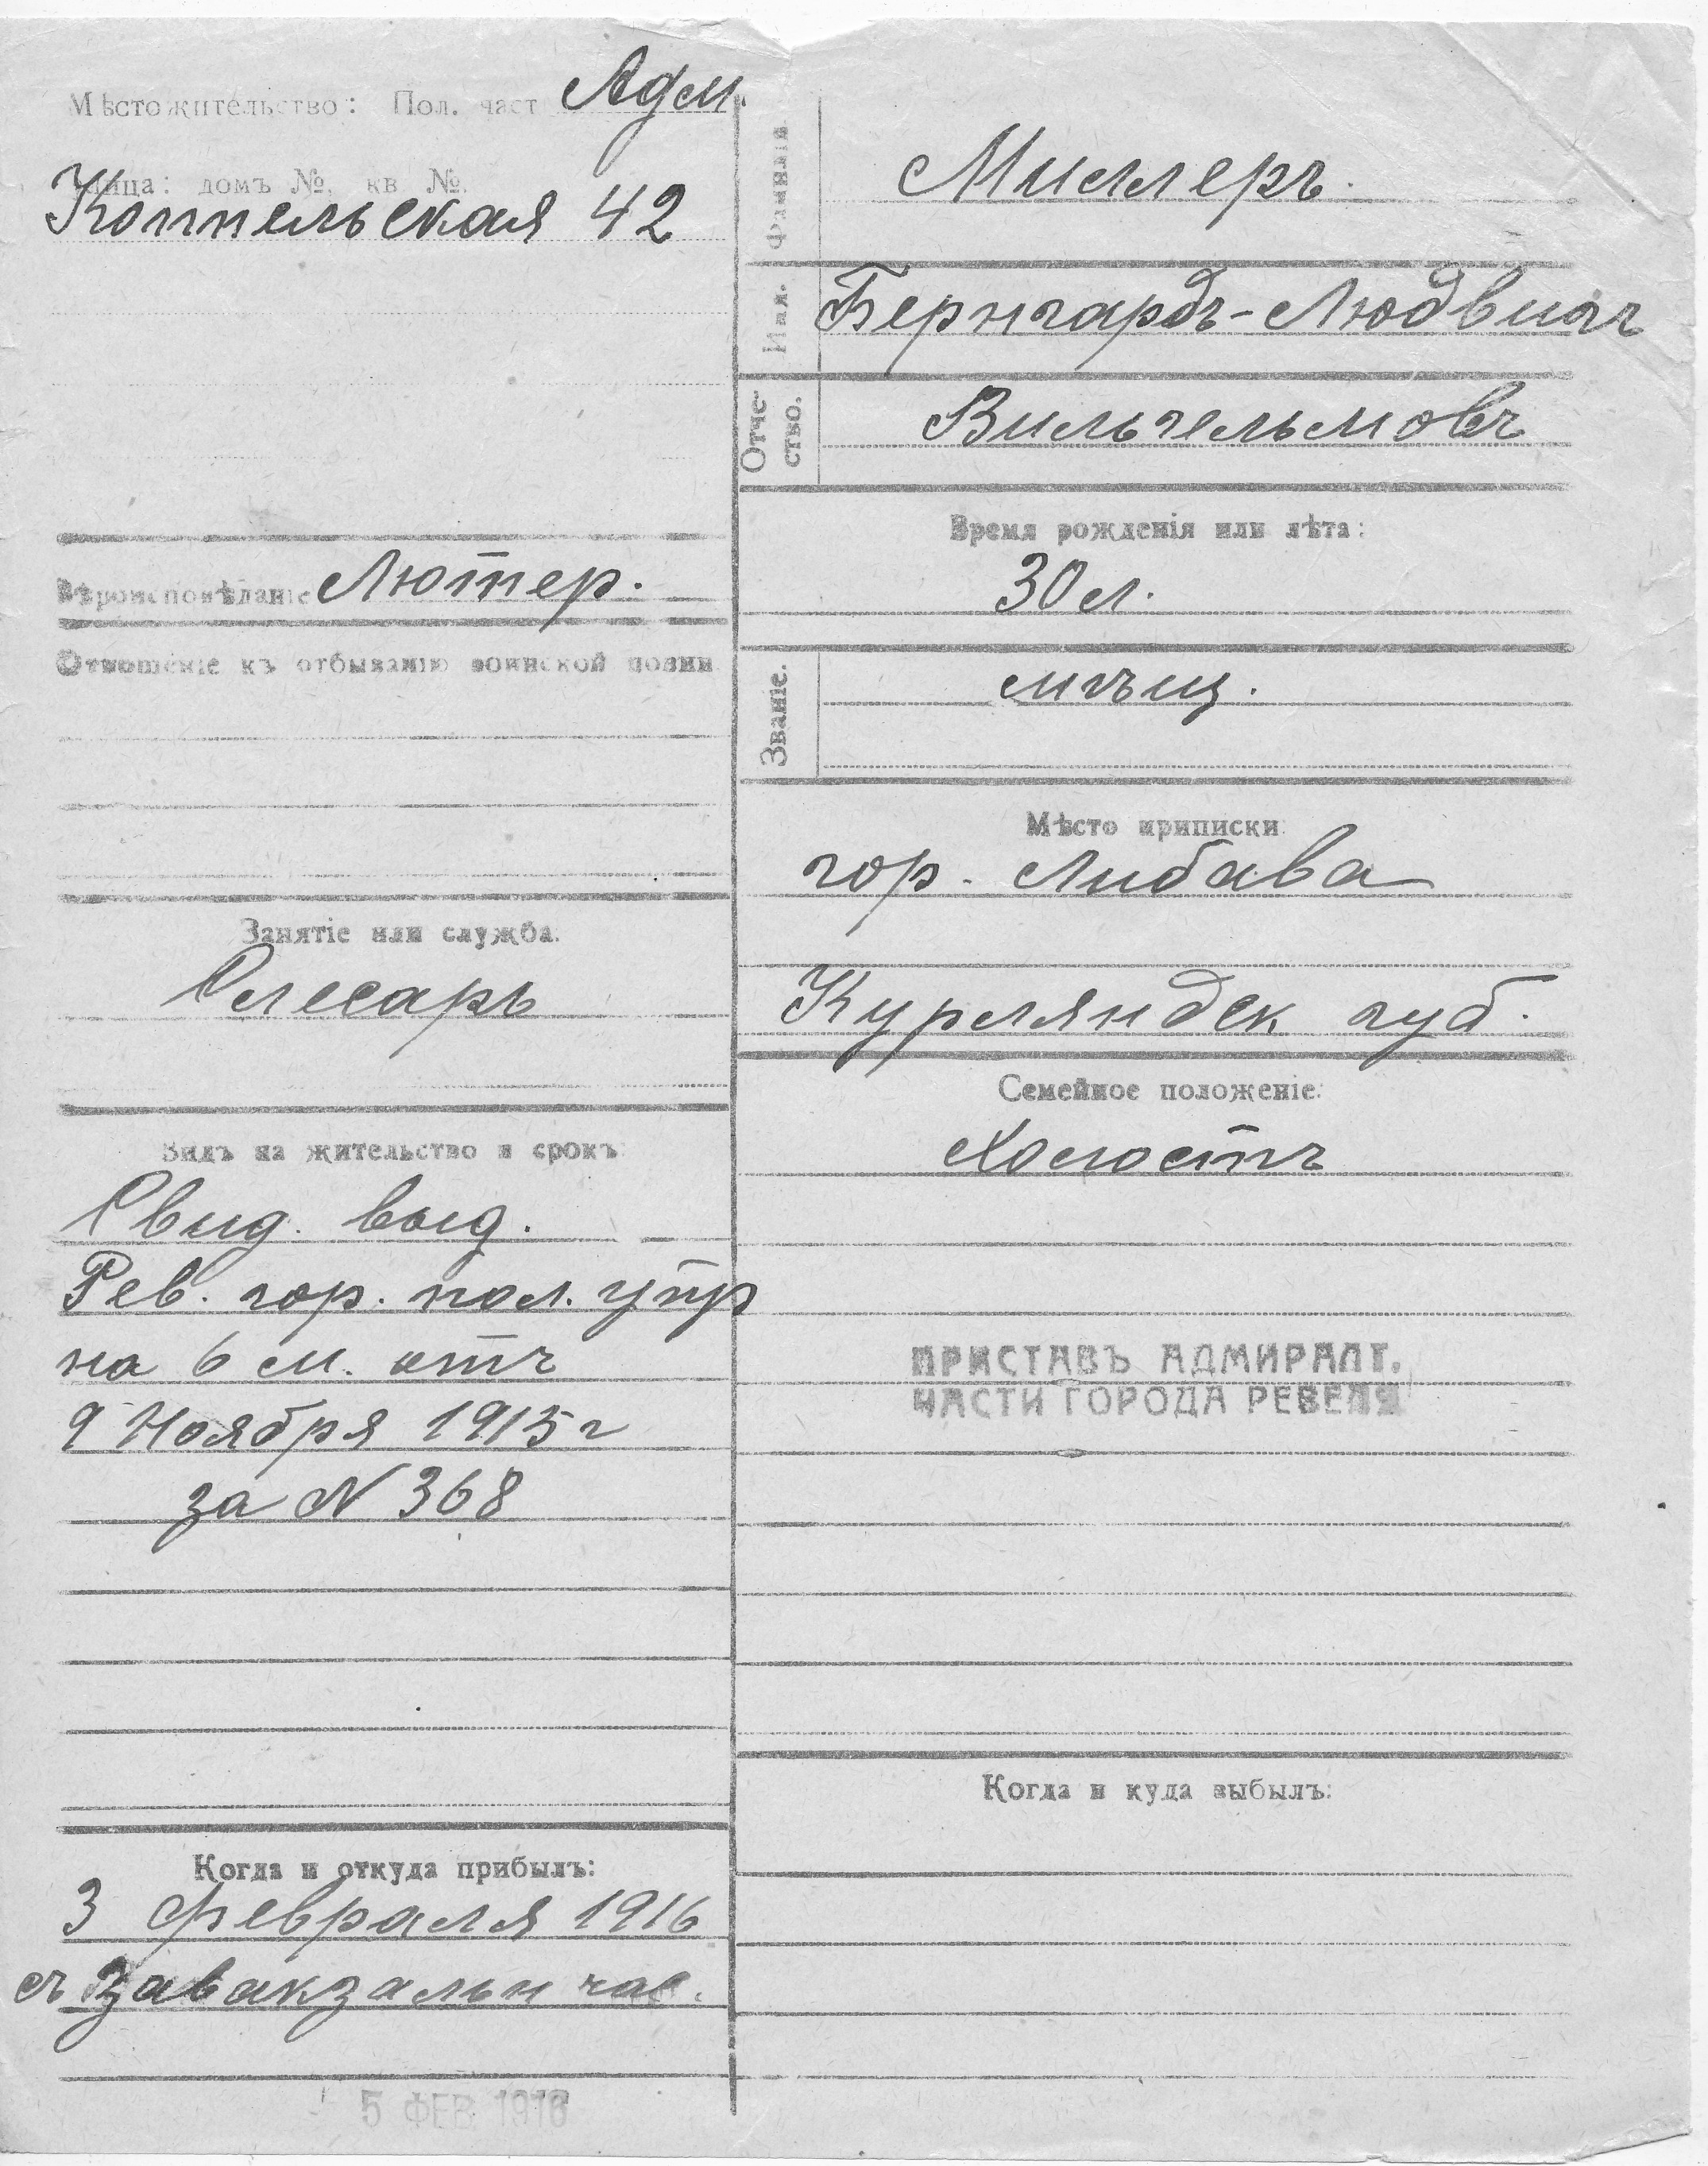 Мѣстожительство: Пол. част Адм.
Улица: домъ №, кв №.
Коппельская 42
Вѣроисповѣданіе Лютер.
Отношеніе къ отбыванію воинской повин
Занятіе или служба.
Слесарь
Видъ на жительство и срокъ
Свид. выд.
Рев. гор. пол. упр
на 6 м. отъ
9 Ноября 1915 г
за N 368
Когда и откуда прибылъ:
3 Февраля 1916
съ Завакзальн час.
5 ФЕВ 1916
Фамилія
Миллеръ.
Имя.
Бернгардъ-Людвигъ
Отче-
ство.
Вильгельмовъ
Время рожденія или лѣта:
30 л.
Званіе.
мѣщ.
Мѣсто приписки
гор. Либава
Курляндск губ.
Семейное положеніе:
Холостъ
ПРИСТАВЪ АДМИРАЛТ.
ЧАСТИ ГОРОДА РЕВЕЛЯ
Когда и куда выбылъ: